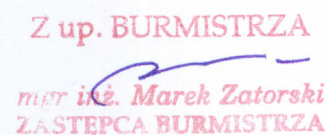 Z up. BURMISTRZA
mgr inż. Marek Zatorski
ZASTĘPCA BURMISTRZA